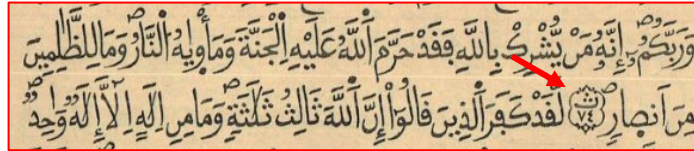 وَرَبَّكُمْ إِنَّهُ مَنْ يُّشْرِكْ بِاللَّهِ فَقَدْ حَرَّمَ اللَّهُ عَلَيْهِ الْجَنَّةَ وَمَأْوٰىهُ النَّارُ وَمَا لِلظّٰلِمِيْنَ
مِنْ اَنْصَارٍ ث ٧٤ لَقَدْ كَفَرَ الَّذِيْنَ قَالُوْٓا اِنَّ اللَّهَ ثَالِثُ ثَلٰثَةٍ وَمَا مِنْ اِلٰهٍ اِلَّآ اِلٰهٌ وَّاحِدٌ